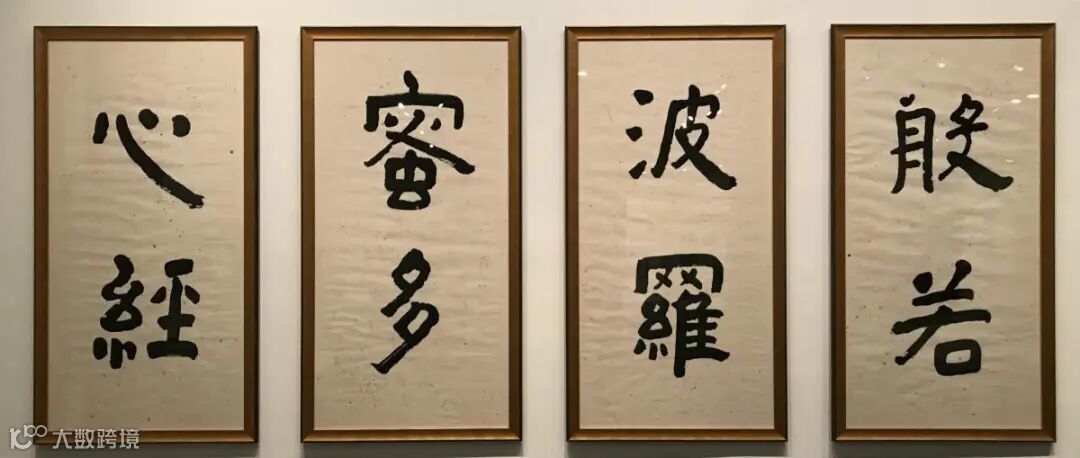 般若
波羅
蜜多
心經
大数跨境